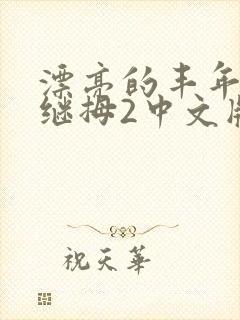 漂亮的丰年
继拇2中文版
祝天華